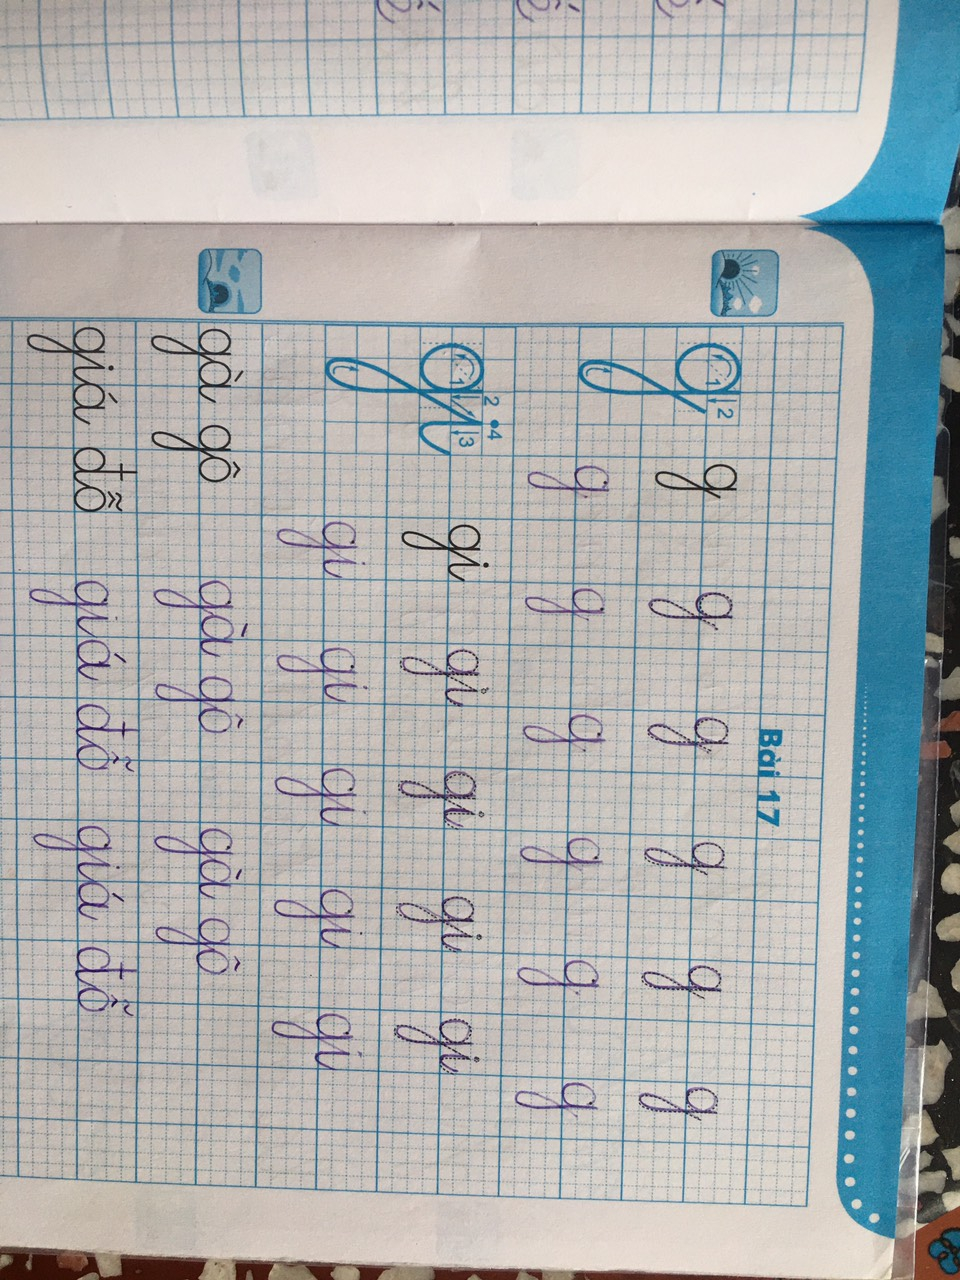 Bài 17
g 1 2 g g g g g g
g g g g g g
gi 1 2 3 4 gi gi gi gi gi
gi gi gi gi gi
gà gô gà gô gà gô
giá đỗ giá đỗ giá đỗ